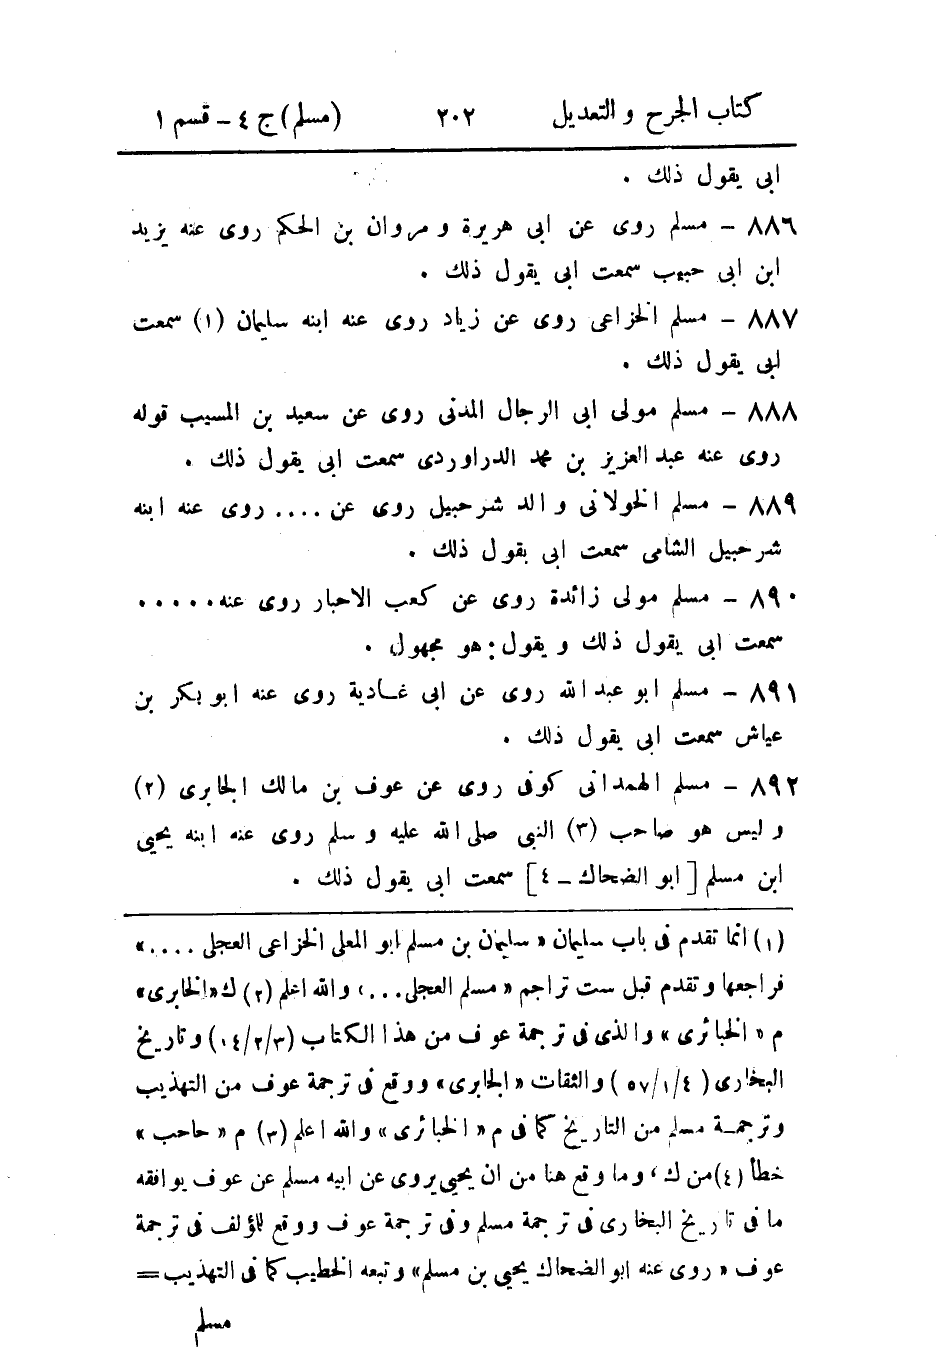 كتاب الجرح و التعديل ٢٠٢ (مسلم) ج ٤ – قسم ١
ابى يقول ذلك .
٨٨٦ – مسلم روى عن ابى هريرة و مروان بن الحكم روى عنه يزيد
ابن ابى حبيب سمعت ابى يقول ذلك .
٨٨٧ – مسلم الخزاعى روى عن زياد روى عنه ابنه سليمان (١) سمعت
ابى يقول ذلك .
٨٨٨ – مسلم مولى ابى الرجال المدنى روى عن سعيد بن المسيب قوله
روى عنه عبد العزيز بن محمد الدراوردى سمعت ابى يقول ذلك .
٨٨٩ – مسلم الخولانى والد شرحبيل روى عن .... روى عنه ابنه
شرحبيل الشامى سمعت ابى يقول ذلك .
٨٩٠ – مسلم مولى زائدة روى عن كعب الاحبار روى عنه .....
سمعت ابى يقول ذلك و يقول: هو مجهول .
٨٩١ – مسلم ابو عبد الله روى عن ابى غادية روى عنه ابو بكر بن
عياش سمعت ابى يقول ذلك .
٨٩٢ – مسلم الهمدانى كوفى روى عن عوف بن مالك الجابرى (٢)
و ليس هو صاحب (٣) النبى صلى الله عليه و سلم روى عنه ابنه يحيى
ابن مسلم [ابو الضحاك – ٤] سمعت ابى يقول ذلك .
(١) انما تقدم فى باب سليمان « سليمان بن مسلم ابو المعلى الخزاعى العجلى ....»
فراجعها و تقدم قبل ست تراجم « مسلم العجلى ...» والله اعلم (٢) ك «الخابرى»
م « الخبائرى » و الذى فى ترجمة عوف من هذا الكتاب (١٤/٢/٣) و تاريخ
البخارى (٥٧/١/٤) و الثقات « الجابرى» و وقع فى ترجمة عوف من التهذيب
و ترجمة مسلم من التاريخ كما فى م « الخبائرى » والله اعلم (٣) م « حاحب »
خطأ (٤) من ك، و ما وقع هنا من ان يحيى يروى عن ابيه مسلم عن عوف يوافقه
ما فى تاريخ البخارى فى ترجمة مسلم و فى ترجمة عوف و وقع للمؤلف فى ترجمة
عوف « روى عنه ابو الضحاك يحيى بن مسلم» و تبعه الخطيب كما فى التهذيب =
مسلم